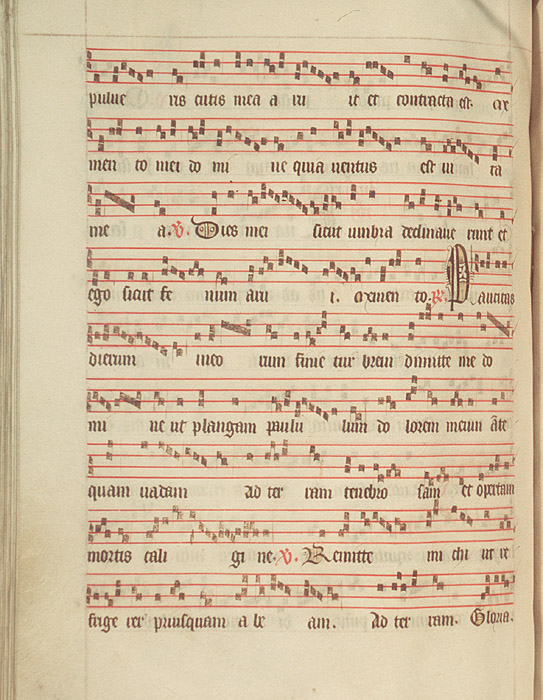 pulue ris cutis mea a ru it et contracta est. ax
men to mei do mi ne quia uentus est ui ta
me a. V. Dies mei sicut umbra declinaue runt et
ego sicut fe num aru i. axmen to. R. Paucitas
dierum meo rum finie tur breui dimitte me do
mi ne ut plangam paulu lum do lorem meum ante
quam uadam Ad ter ram tenebro sam et opertam
mortis cali gi ne. V. Remitte mi chi ut re
frige rer priusquam a be am. Ad ter ram. Gloria.